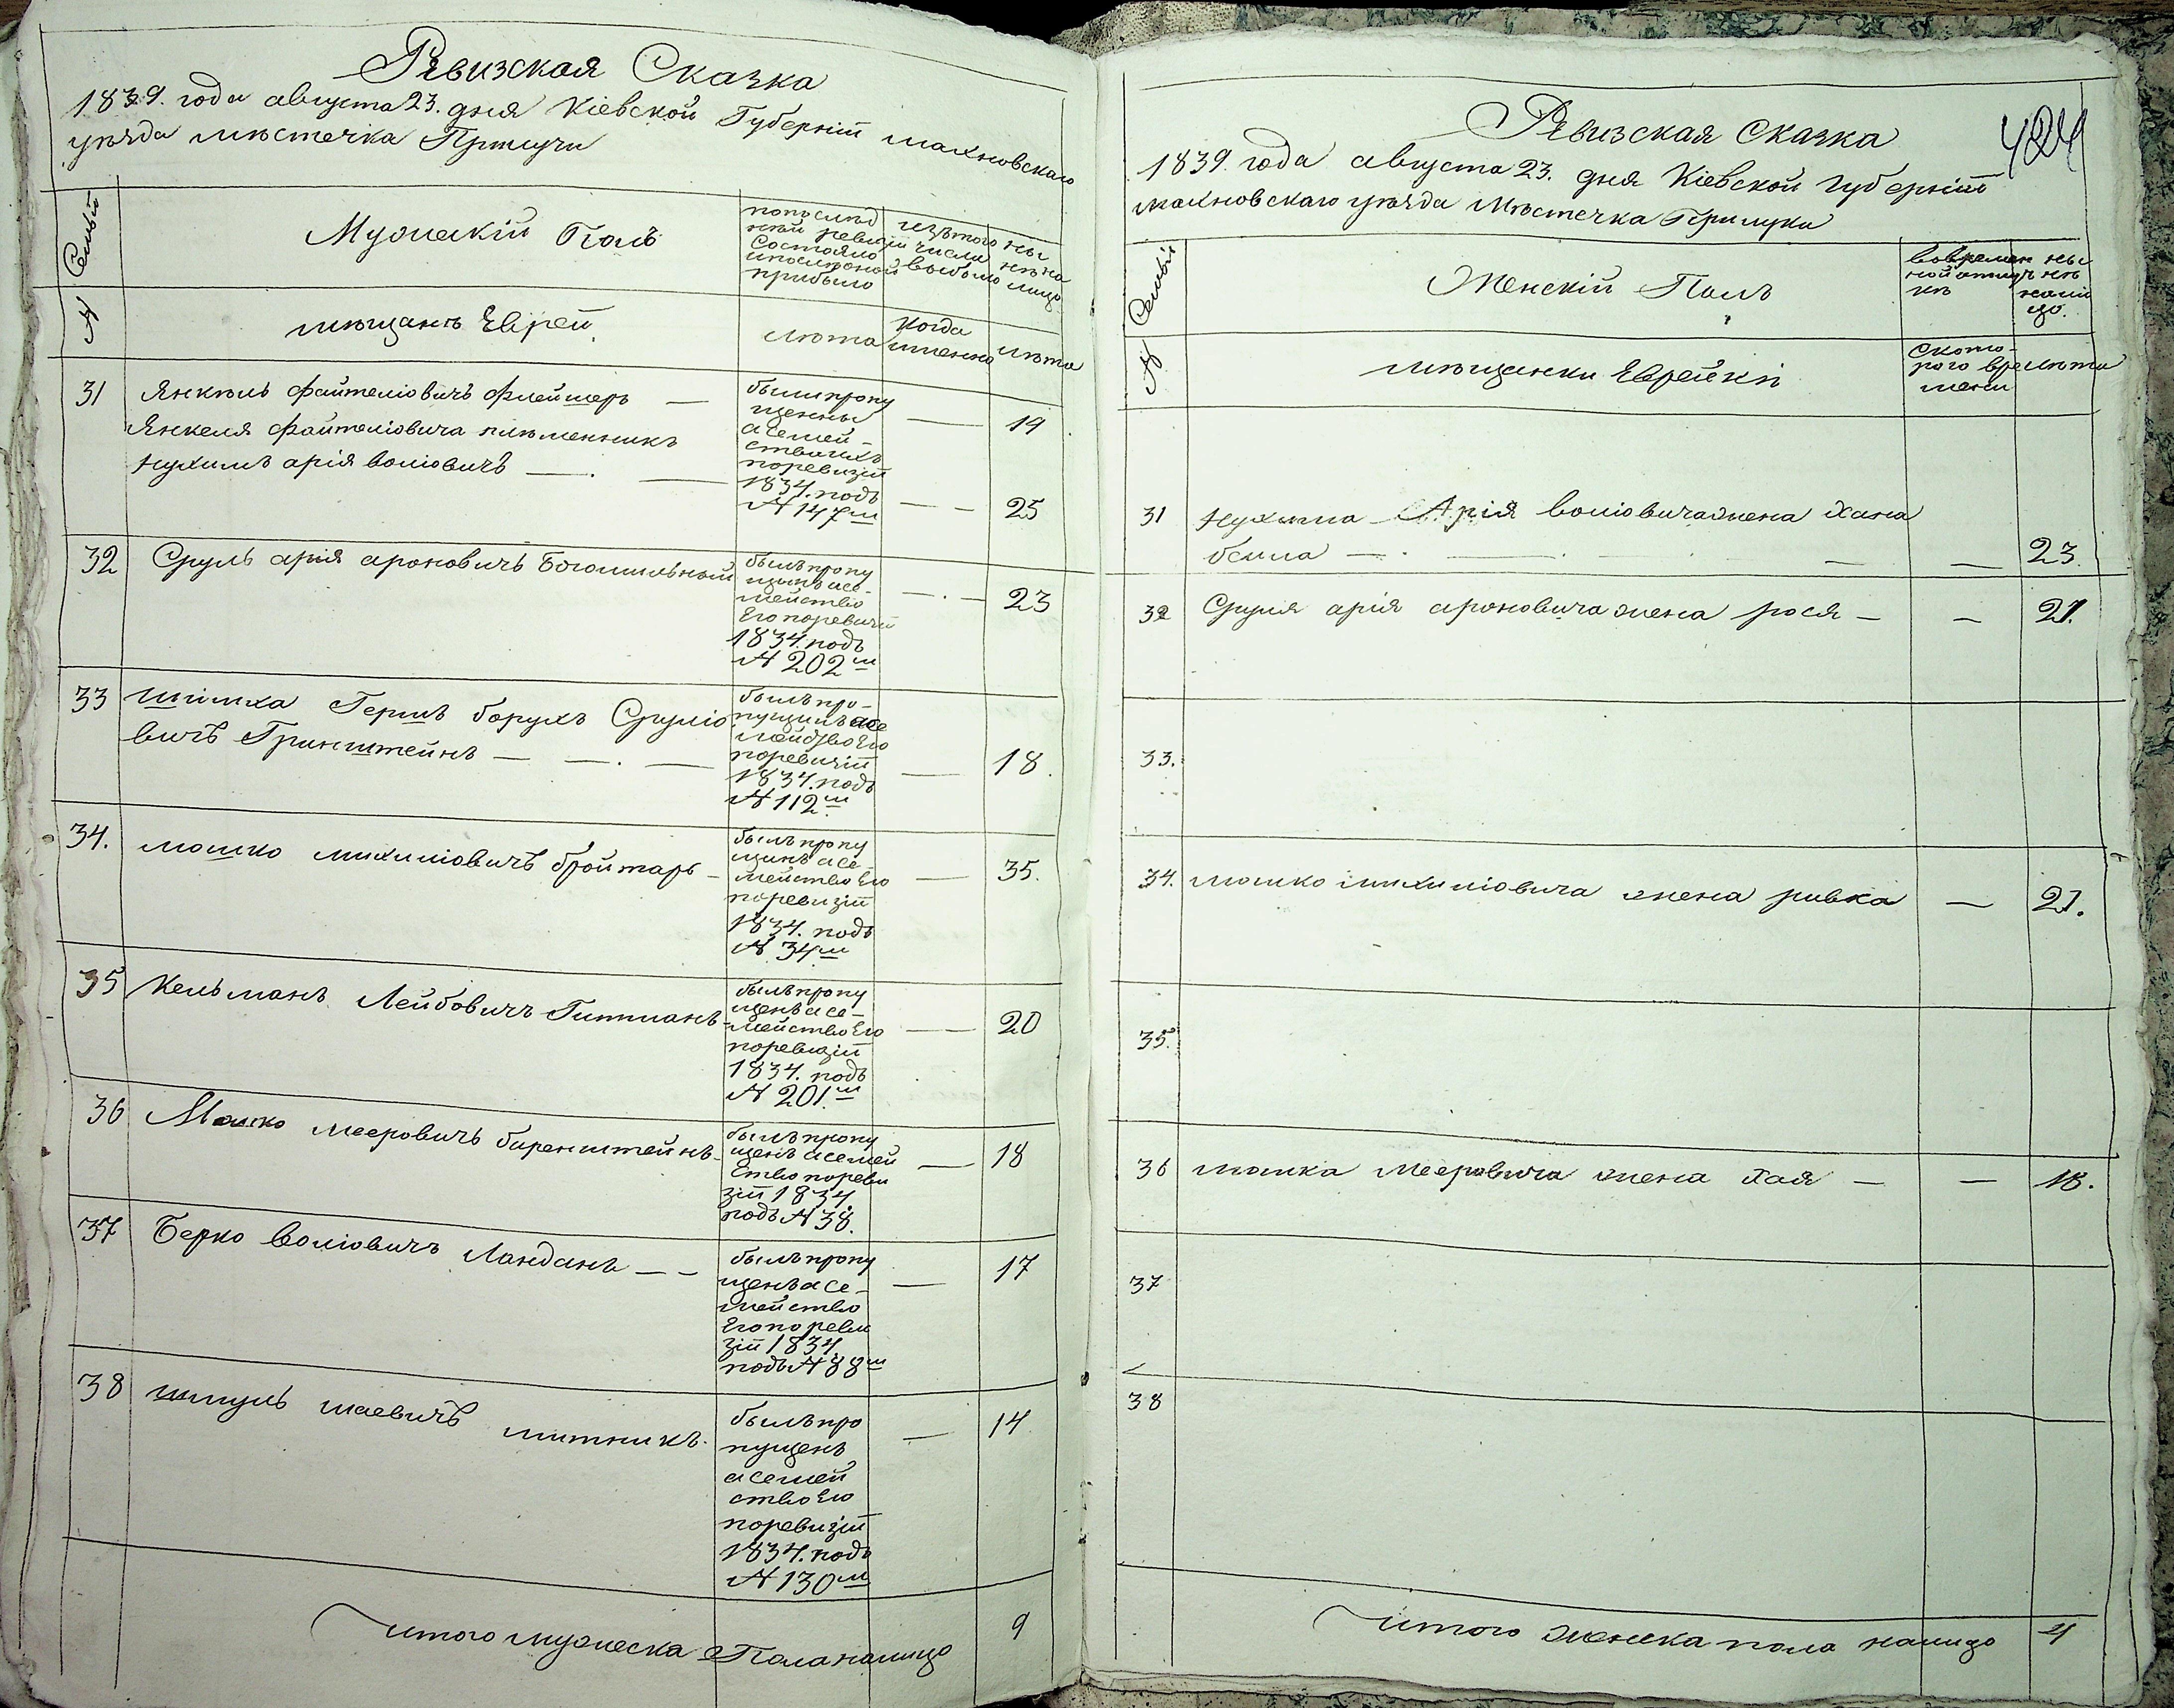 Ревизская Сказка
1839. года августа 23. дня Кіевской Губерніи махновскаго
уезда местечка Прилуки
Семьи
Мужескій Полъ
попослед
ней ревизіи
Состояло
ипослеоной
прибыло
изътого
числа
выбыло
ны
не на
лицо
№
мещанъ Еврей
лета
когда
именно
лета
31
Янкель Файтеліовичъ Флейшеръ —
19
Янкеля Файтеліовича племенникъ
Нухимъ арія воліовичъ —
были пропу
щенны
а семей-
ство ихъ
поревизіи
1834. подъ
№ 147м
25
32
Сруль арія ароновичъ Богомильный
былъ пропу
щенъ асе-
мейство
Его поревизіи
1834. подъ
№ 202м
23
33
Шимха Гершъ борухъ Сруліо
вичъ Гринштейнъ —
былъ про-
пущинъ асе
мейство Его
поревизіи
1834. подъ
№ 112м
18.
34.
мошко михиліовичъ бройтарь
былъ пропу
щинъ асе-
мейство Его
поревизіи
1834. подъ
№ 34м
35.
35
Кельманъ Лейбовичъ Гитманъ
былъ пропу
щенъ асе-
мейство Его
поревизіи
1834. подъ
№ 201.м
20
36
Мошко мееровичъ биренштейнъ
былъ пропу
щенъ асемей
ство пореви
зіи 1834
подъ № 38.
18
37
Берко воліовичъ Ланданъ — —
былъ пропу
щенъ асе-
мейство
Его пореви
зіи 1834
подъ № 88м
17
38
шмуль шаевичъ митникъ.
былъ про
пущенъ
а семей
ство Его
поревизіи
1834. подъ
№ 130м
14
итого мужеска Пола налицо
9
Ревизская Сказка
1839. года августа 23. дня Кіевской Губерніи
махновскаго уезда Местечка Прилуки
Семьи
Женскій Полъ
вовремен
ной отлуч
ке
ны
не
нали
цо.
№
мещанки Еврейки
Ското-
рого вре
мени
лета
31
Нухима Арія воліовича жена Хана
бейла —
23.
32
Сруля арія ароновича жена рося —
21.
33.
34.
мошко михиліовича жена ривка
21.
35.
36
мошка Мееровича жена Хая —
18.
37
38
итого женска пола налицо
4